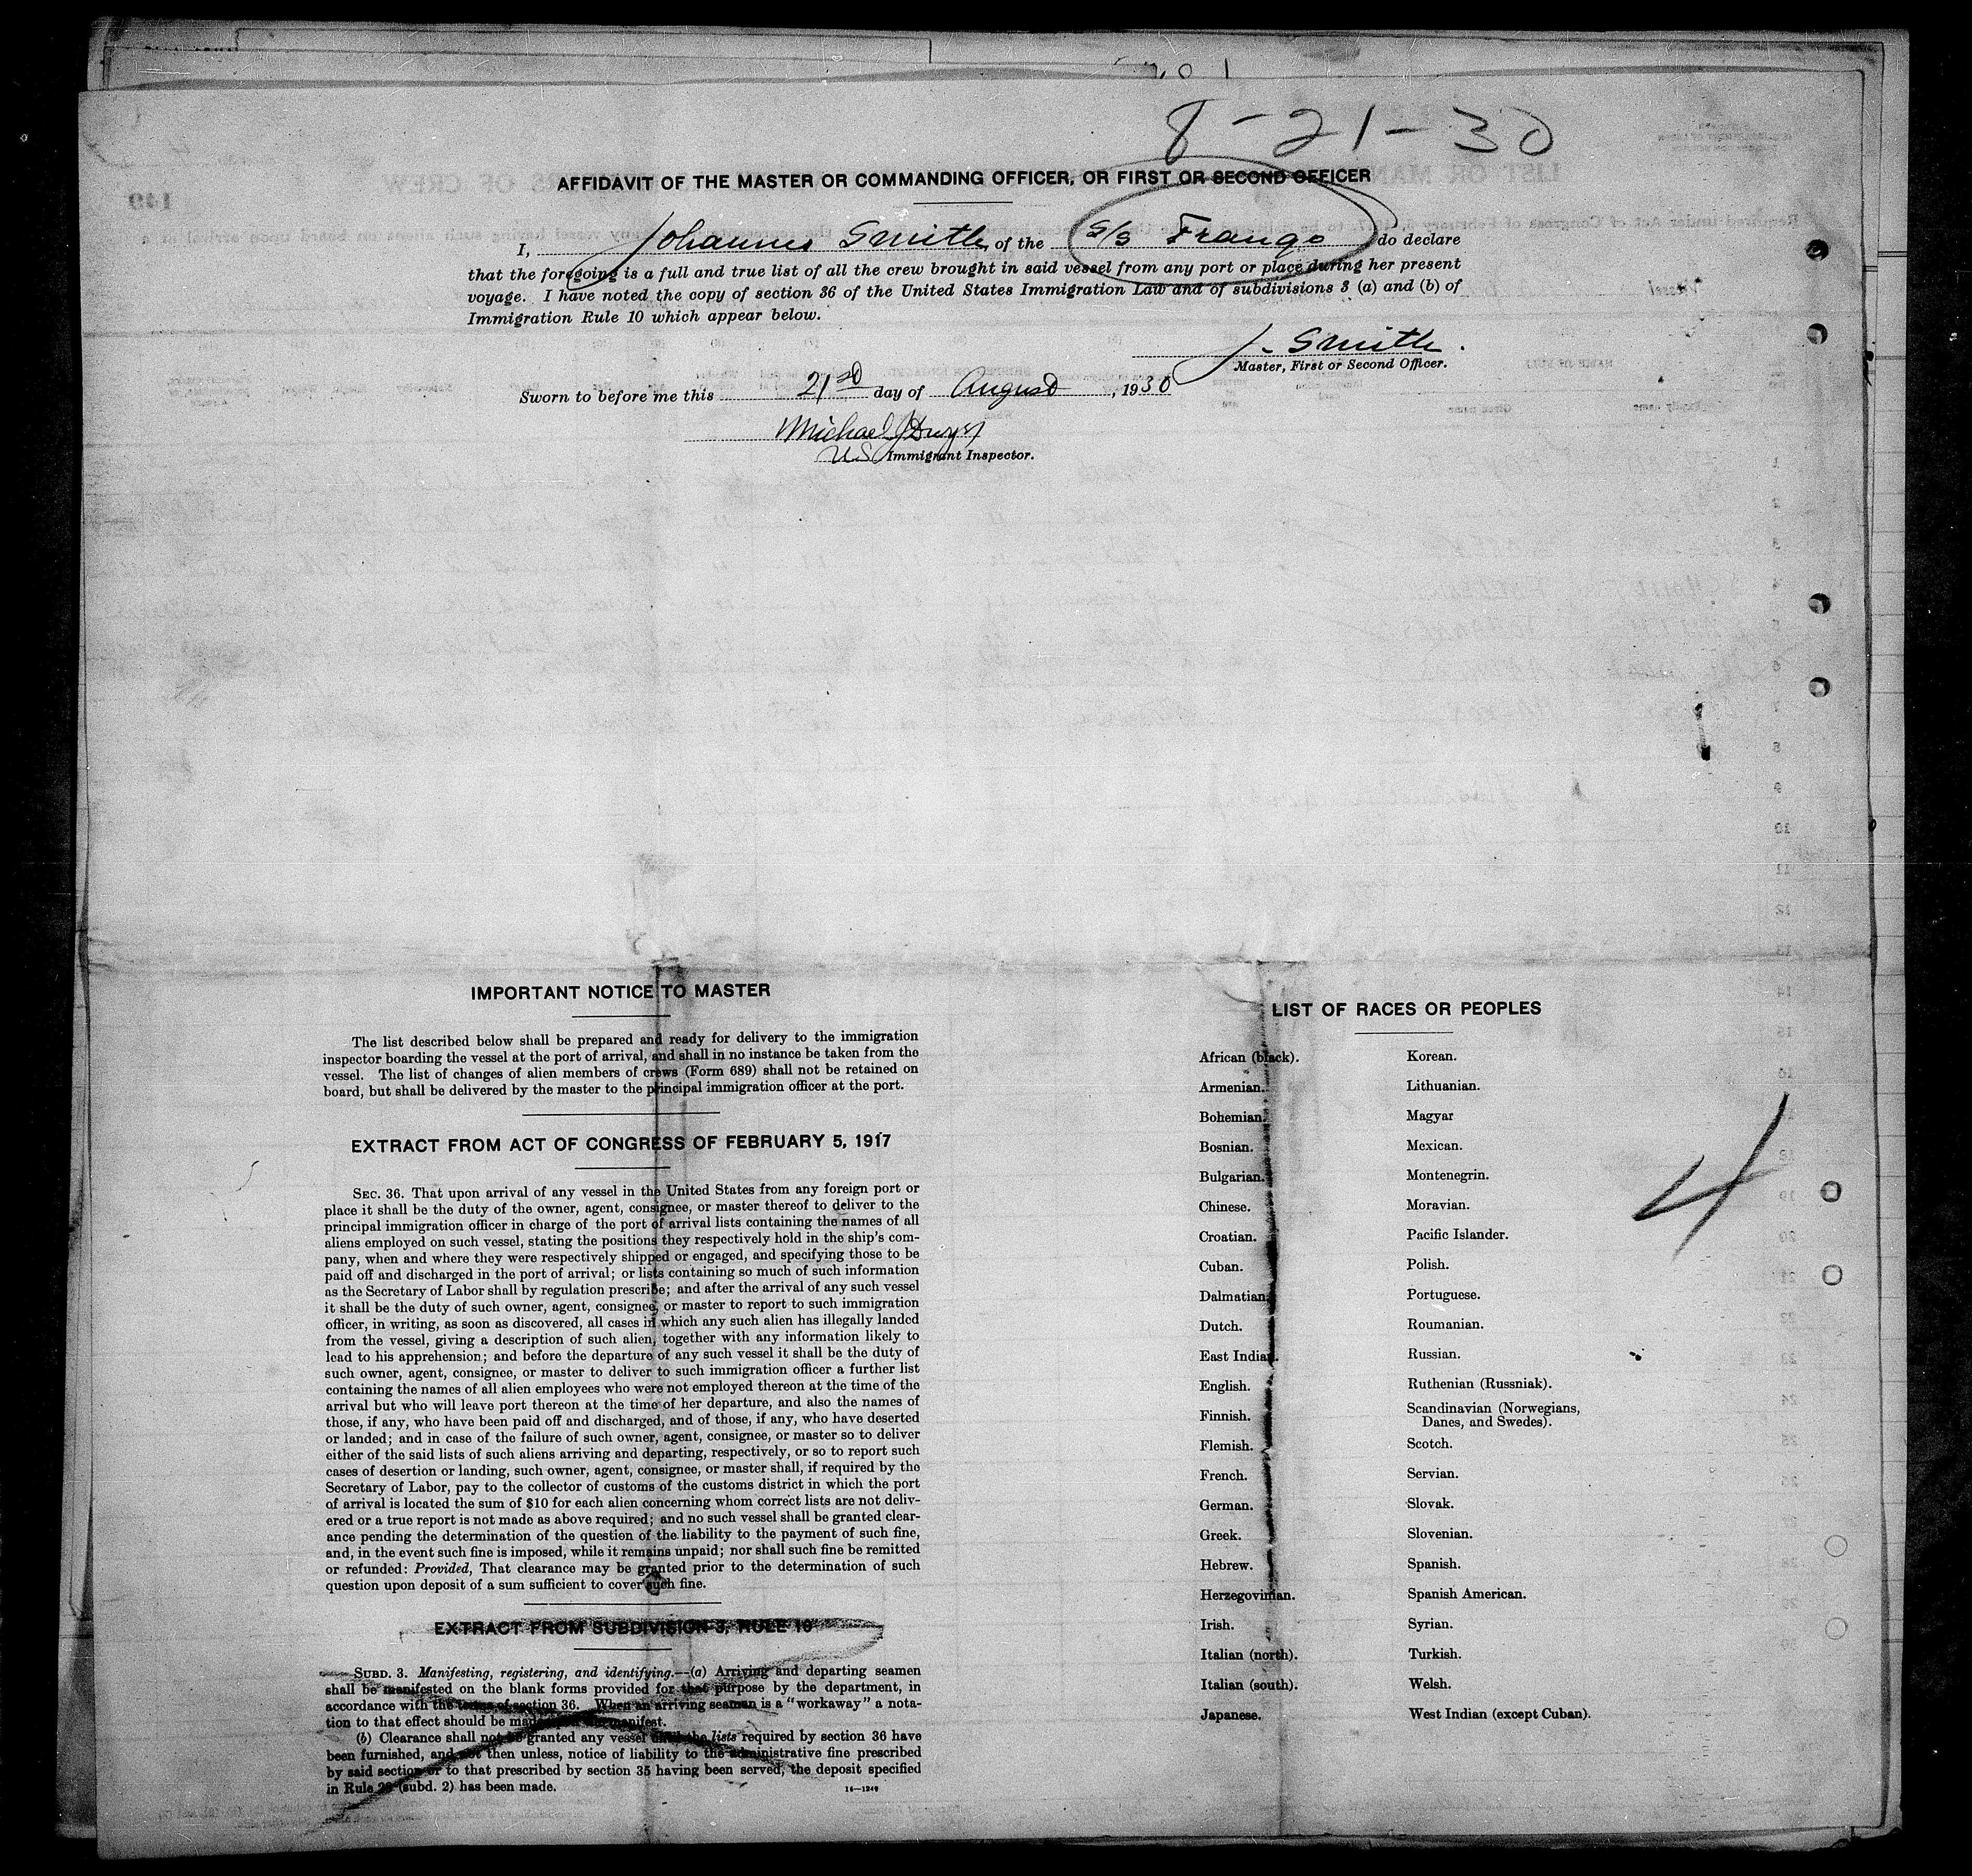 8-21-30
AFFIDAVIT OF THE MASTER OR COMMANDING OFFICER, OR FIRST OR SECOND OFFICER
I, Johannes Smith of the S/S Frango do declare
that the foregoing is a full and true list of all the crew brought in said vessel from any port or place during her present
voyage. I have noted the copy of section 36 of the United States Immigration Law and of subdivisions 3 (a) and (b) of
Immigration Rule 10 which appear below.
J. Smith.
Master, First or Second Officer.
Sworn to before me this 21sd day of August, 1930
Michael J Dwyer
US Immigrant Inspector.
IMPORTANT NOTICE TO MASTER
The list described below shall be prepared and ready for delivery to the immigration
inspector boarding the vessel at the port of arrival, and shall in no instance be taken from the
vessel. The list of changes of alien members of crews (Form 689) shall not be retained on
board, but shall be delivered by the master to the principal immigration officer at the port.
EXTRACT FROM ACT OF CONGRESS OF FEBRUARY 5, 1917
SEC. 36. That upon arrival of any vessel in the United States from any foreign port or
place it shall be the duty of the owner, agent, consignee, or master thereof to deliver to the
principal immigration officer in charge of the port of arrival lists containing the names of all
aliens employed on such vessel, stating the positions they respectively hold in the ship's com-
pany, when and where they were respectively shipped or engaged, and specifying those to be
paid off and discharged in the port of arrival; or lists containing so much of such information
as the Secretary of Labor shall by regulation prescribe; and after the arrival of any such vessel
it shall be the duty of such owner, agent, consignee, or master to report to such immigration
officer, in writing, as soon as discovered, all cases in which any such alien has illegally landed
from the vessel, giving a description of such alien, together with any information likely to
lead to his apprehension; and before the departure of any such vessel it shall be the duty of
such owner, agent, consignee, or master to deliver to such immigration officer a further list
containing the names of all alien employees who were not employed thereon at the time of the
arrival but who will leave port thereon at the time of her departure, and also the names of
those, if any, who have been paid off and discharged, and of those, if any, who have deserted
or landed; and in case of the failure of such owner, agent, consignee, or master so to deliver
either of the said lists of such aliens arriving and departing, respectively, or so to report such
cases of desertion or landing, such owner, agent, consignee, or master shall, if required by the
Secretary of Labor, pay to the collector of customs of the customs district in which the port
of arrival is located the sum of $10 for each alien concerning whom correct lists are not deliv-
ered or a true report is not made as above required; and no such vessel shall be granted clear-
ance pending the determination of the question of the liability to the payment of such fine,
and, in the event such fine is imposed, while it remains unpaid; nor shall such fine be remitted
or refunded: Provided, That clearance may be granted prior to the determination of such
question upon deposit of a sum sufficient to cover such fine.
EXTRACT FROM SUBDIVISION 3, RULE 10
SUBD. 3. Manifesting, registering, and identifying.—(a) Arriving and departing seamen
shall be manifested on the blank forms provided for that purpose by the department, in
accordance with the terms of section 36. When an arriving seaman is a "workaway" a nota-
tion to that effect should be made manifest.
(b) Clearance shall not be granted any vessel until the lists required by section 36 have
been furnished, and not then unless, notice of liability to the administrative fine prescribed
by said section or to that prescribed by section 35 having been served, the deposit specified
in Rule 28 (subd. 2) has been made.
16—1249
LIST OF RACES OR PEOPLES
African (black).
Armenian.
Bohemian.
Bosnian.
Bulgarian.
Chinese.
Croatian.
Cuban.
Dalmatian.
Dutch.
East Indian.
English.
Finnish.
Flemish.
French.
German.
Greek.
Hebrew.
Herzegovinian.
Irish.
Italian (north).
Italian (south).
Japanese.
Korean.
Lithuanian.
Magyar
Mexican.
Montenegrin.
Moravian.
Pacific Islander.
Polish.
Portuguese.
Roumanian.
Russian.
Ruthenian (Russniak).
Scandinavian (Norwegians,
Danes, and Swedes).
Scotch.
Servian.
Slovak.
Slovenian.
Spanish.
Spanish American.
Syrian.
Turkish.
Welsh.
West Indian (except Cuban).
4